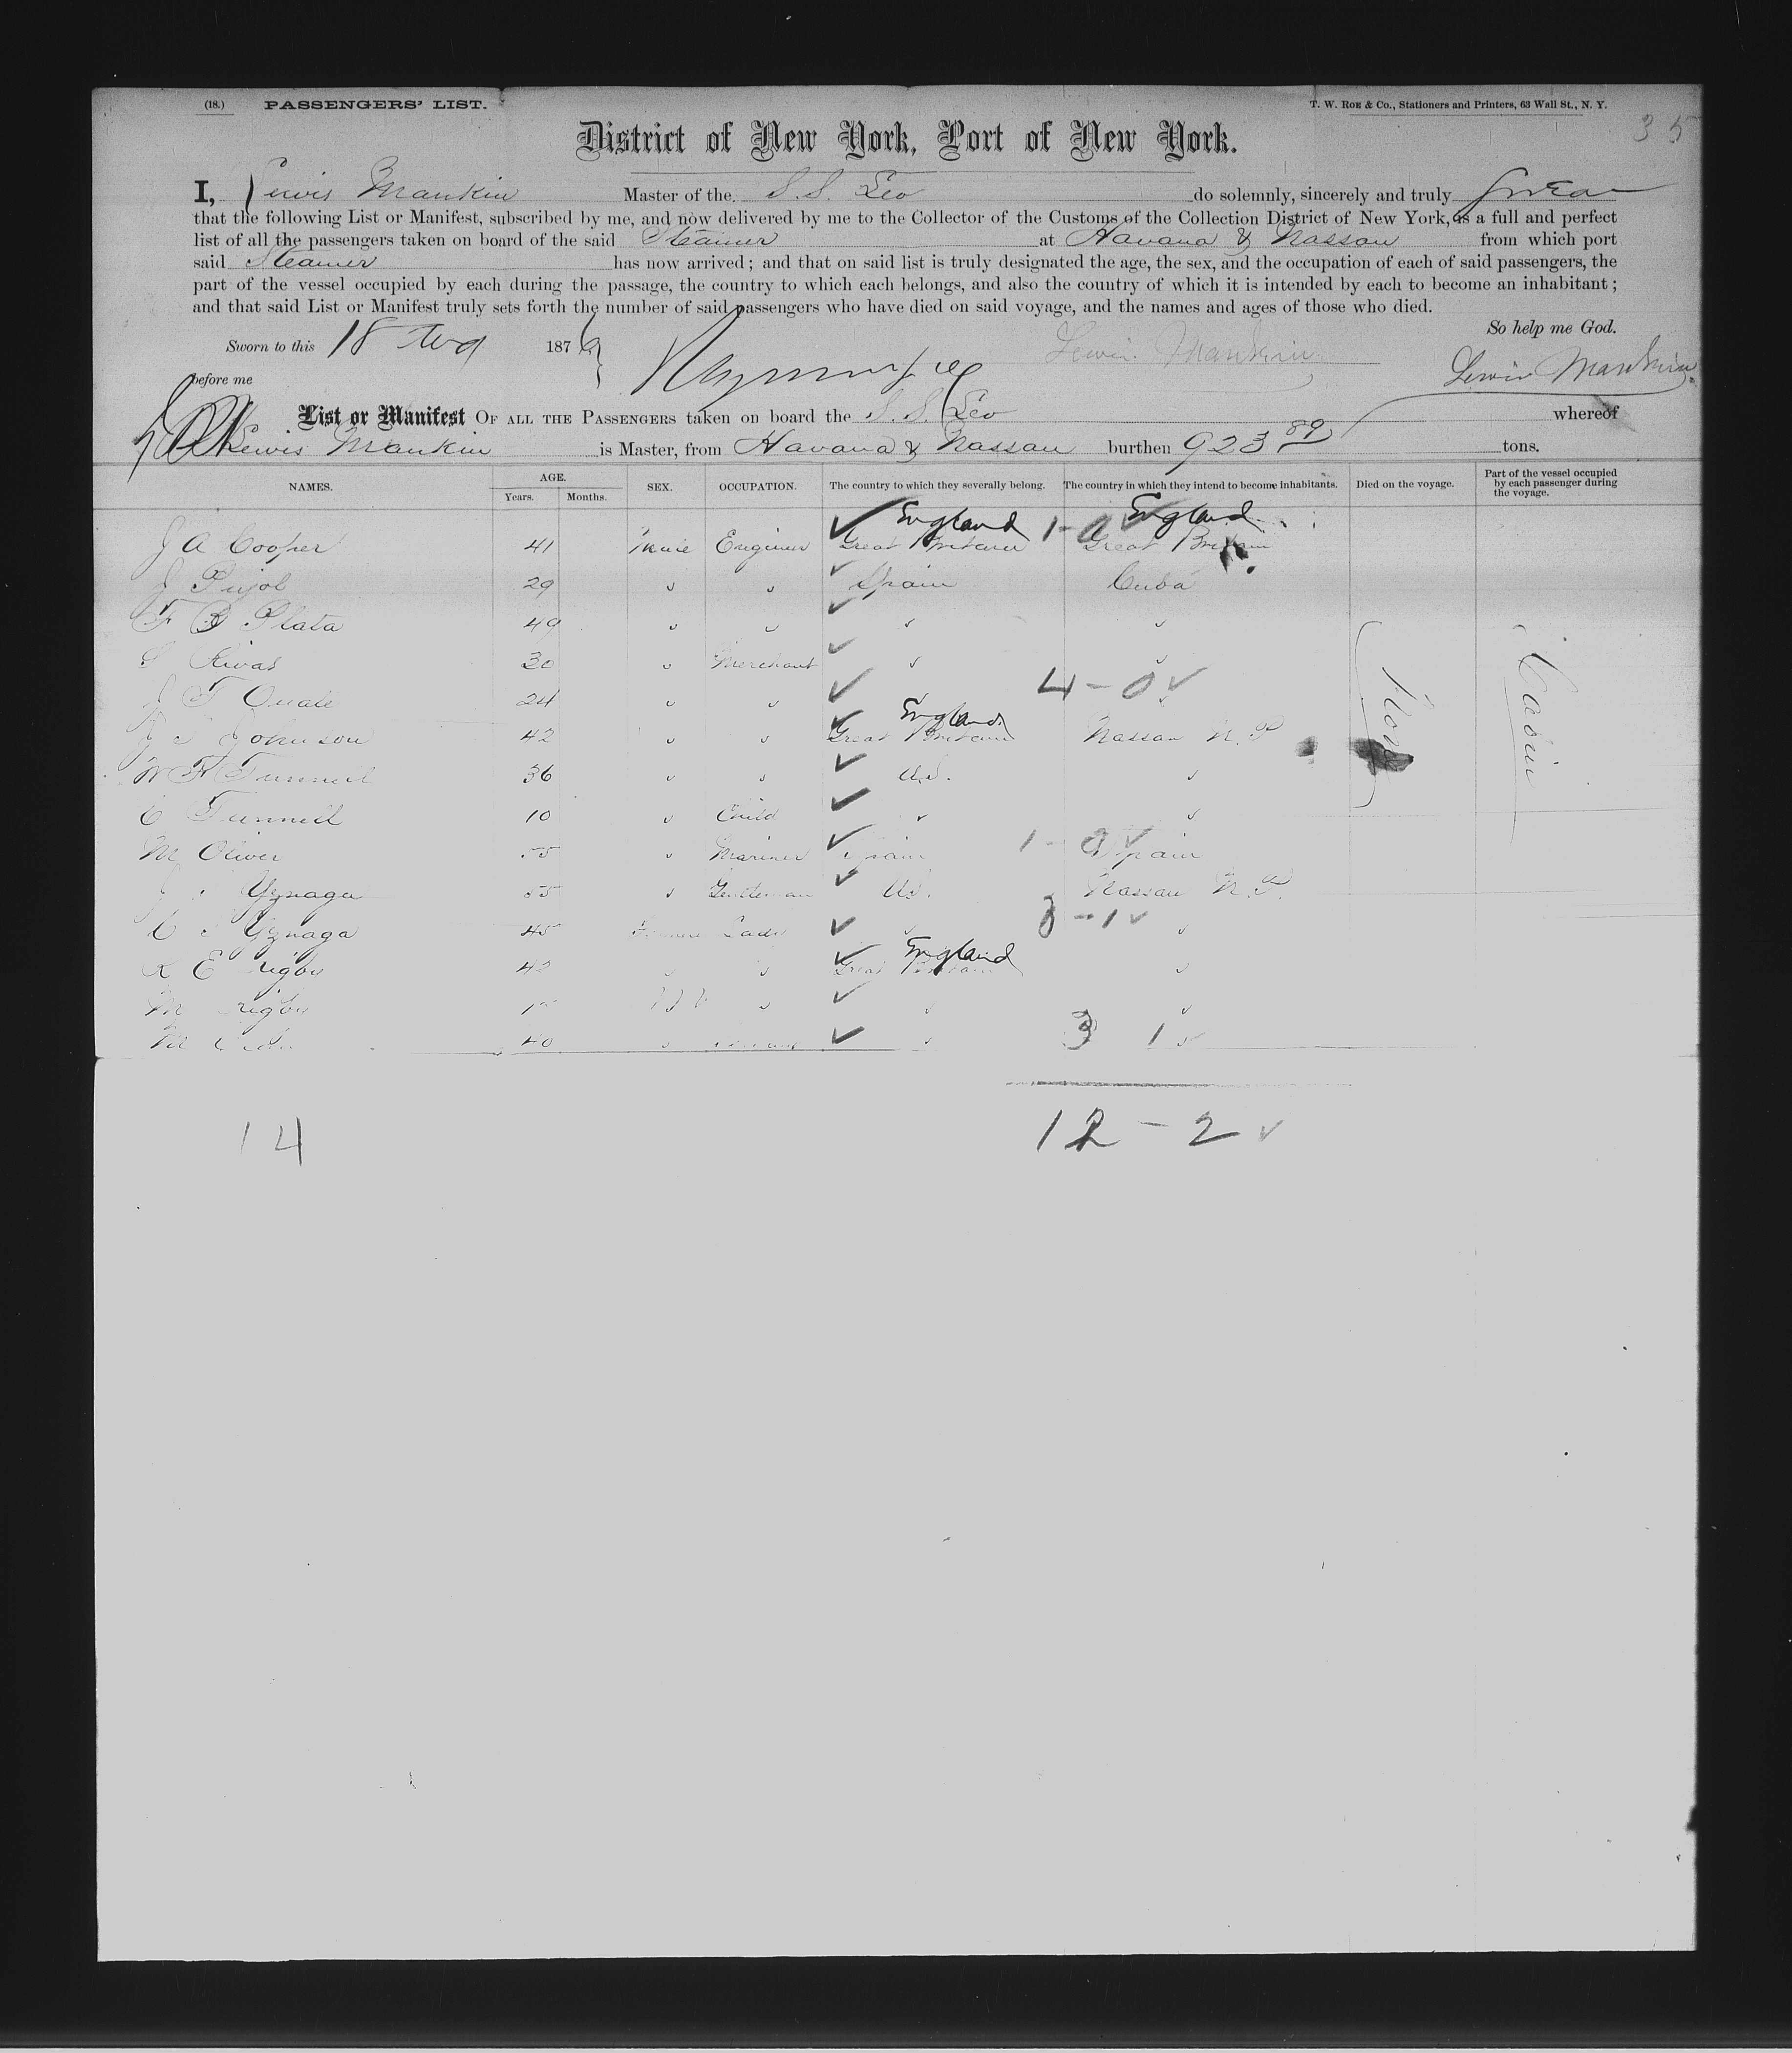 (18.) PASSENGERS' LIST. T. W. Roe & Co., Stationers and Printers, 63 Wall St., N. Y.
35
District of New York, Port of New York.
I, Lewis Mankin Master of the S.S. Leo do solemnly, sincerely and truly swear
that the following List or Manifest, subscribed by me, and now delivered by me to the Collector of the Customs of the Collection District of New York, is a full and perfect
list of all the passengers taken on board of the said Steamer at Havana & Nassau from which port
said Steamer has now arrived; and that on said list is truly designated the age, the sex, and the occupation of each of said passengers, the
part of the vessel occupied by each during the passage, the country to which each belongs, and also the country of which it is intended by each to become an inhabitant;
and that said List or Manifest truly sets forth the number of said passengers who have died on said voyage, and the names and ages of those who died.
So help me God.
Sworn to this 18 1876 Lewis Mankin Lewis Mankin
before me
List or Manifest OF ALL THE PASSENGERS taken on board the S.S. Leo whereof
Lewis Mankin is Master, from Havana & Nassau burthen 923 89 tons.
NAMES. AGE. Years. Months. SEX. OCCUPATION. The country to which they severally belong. The country in which they intend to become inhabitants. Died on the voyage. Part of the vessel occupied by each passenger during the voyage.
England 1-0 ✓ England
J A Cooper 41 Male Engineer ✓ Great Britain Great Britain
J Pujol 29 " " ✓ Spain Cuba
F B Plata 49 " " ✓ " "
Rivas 30 " Merchant ✓ " "
J F Ouate 24 " " ✓ 4-0 ✓ "
England
J S Johnson 42 " " ✓ Great Britain Nassau N.P.
W H Tunnell 36 " " ✓ U.S. "
C Tunnell 10 " Child ✓ " "
M Oliver 55 " Mariner ✓ Spain 1-0 ✓ Spain
J Yznaga 55 " Gentleman ✓ U.S. Nassau N.P.
C Yznaga 45 Female Lady ✓ " 0-1 ✓ "
England
R E Rigby 42 " " ✓ Great Britain "
M Rigby " ✓ " "
40 " ✓ " 3 1 "
Cabin
14 12-2 ✓